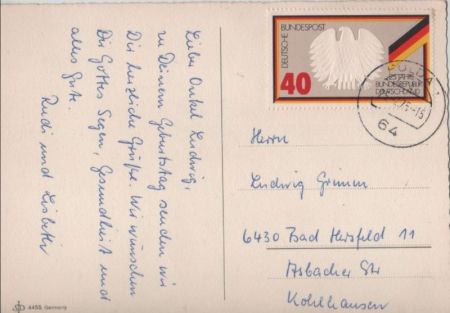 Lieber Onkel Ludwig,
zu Deinem Geburtstag senden wir
Dir herzliche Grüße. Wir wünschen
Dir Gottes Segen, Gesundheit und
alles Gute.
Rudi und Lisbeth
DEUTSCHE BUNDESPOST
40
25 JAHRE
BUNDESREPUBLIK
DEUTSCHLAND
64
Herrn
Ludwig Grimm
6430 Bad Hersfeld 11
Asbacher Str
Kohlhausen
4455 Germany